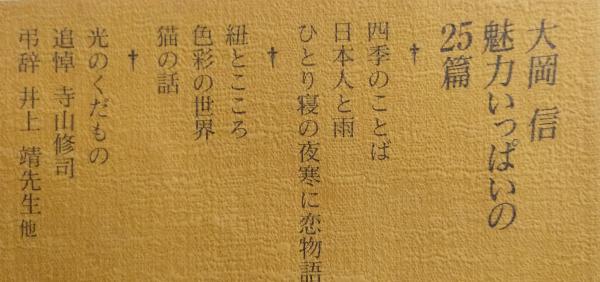 大岡 信
魅力いっぱいの
25篇
†
四季のことば
日本人と雨
ひとり寝の夜寒に恋物語
†
紐とこころ
色彩の世界
猫の話
†
光のくだもの
追悼 寺山修司
弔辞 井上 靖先生 他